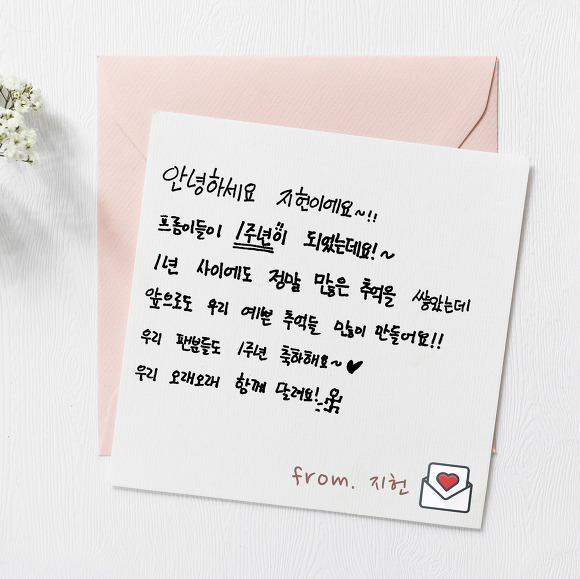 안녕하세요 지헌이에요~!!
프롬이들이 1주년이 되었는데요!~
1년 사이에도 정말 많은 추억을 쌓았는데
앞으로도 우리 예쁜 추억들 많이 만들어요!!
우리 팬분들도 1주년 축하해요~♥
우리 오래오래 함께 달려요!
from. 지헌